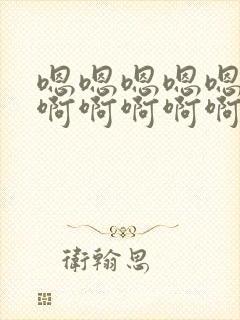 嗯嗯嗯嗯嗯
啊啊啊啊啊
衛翰思